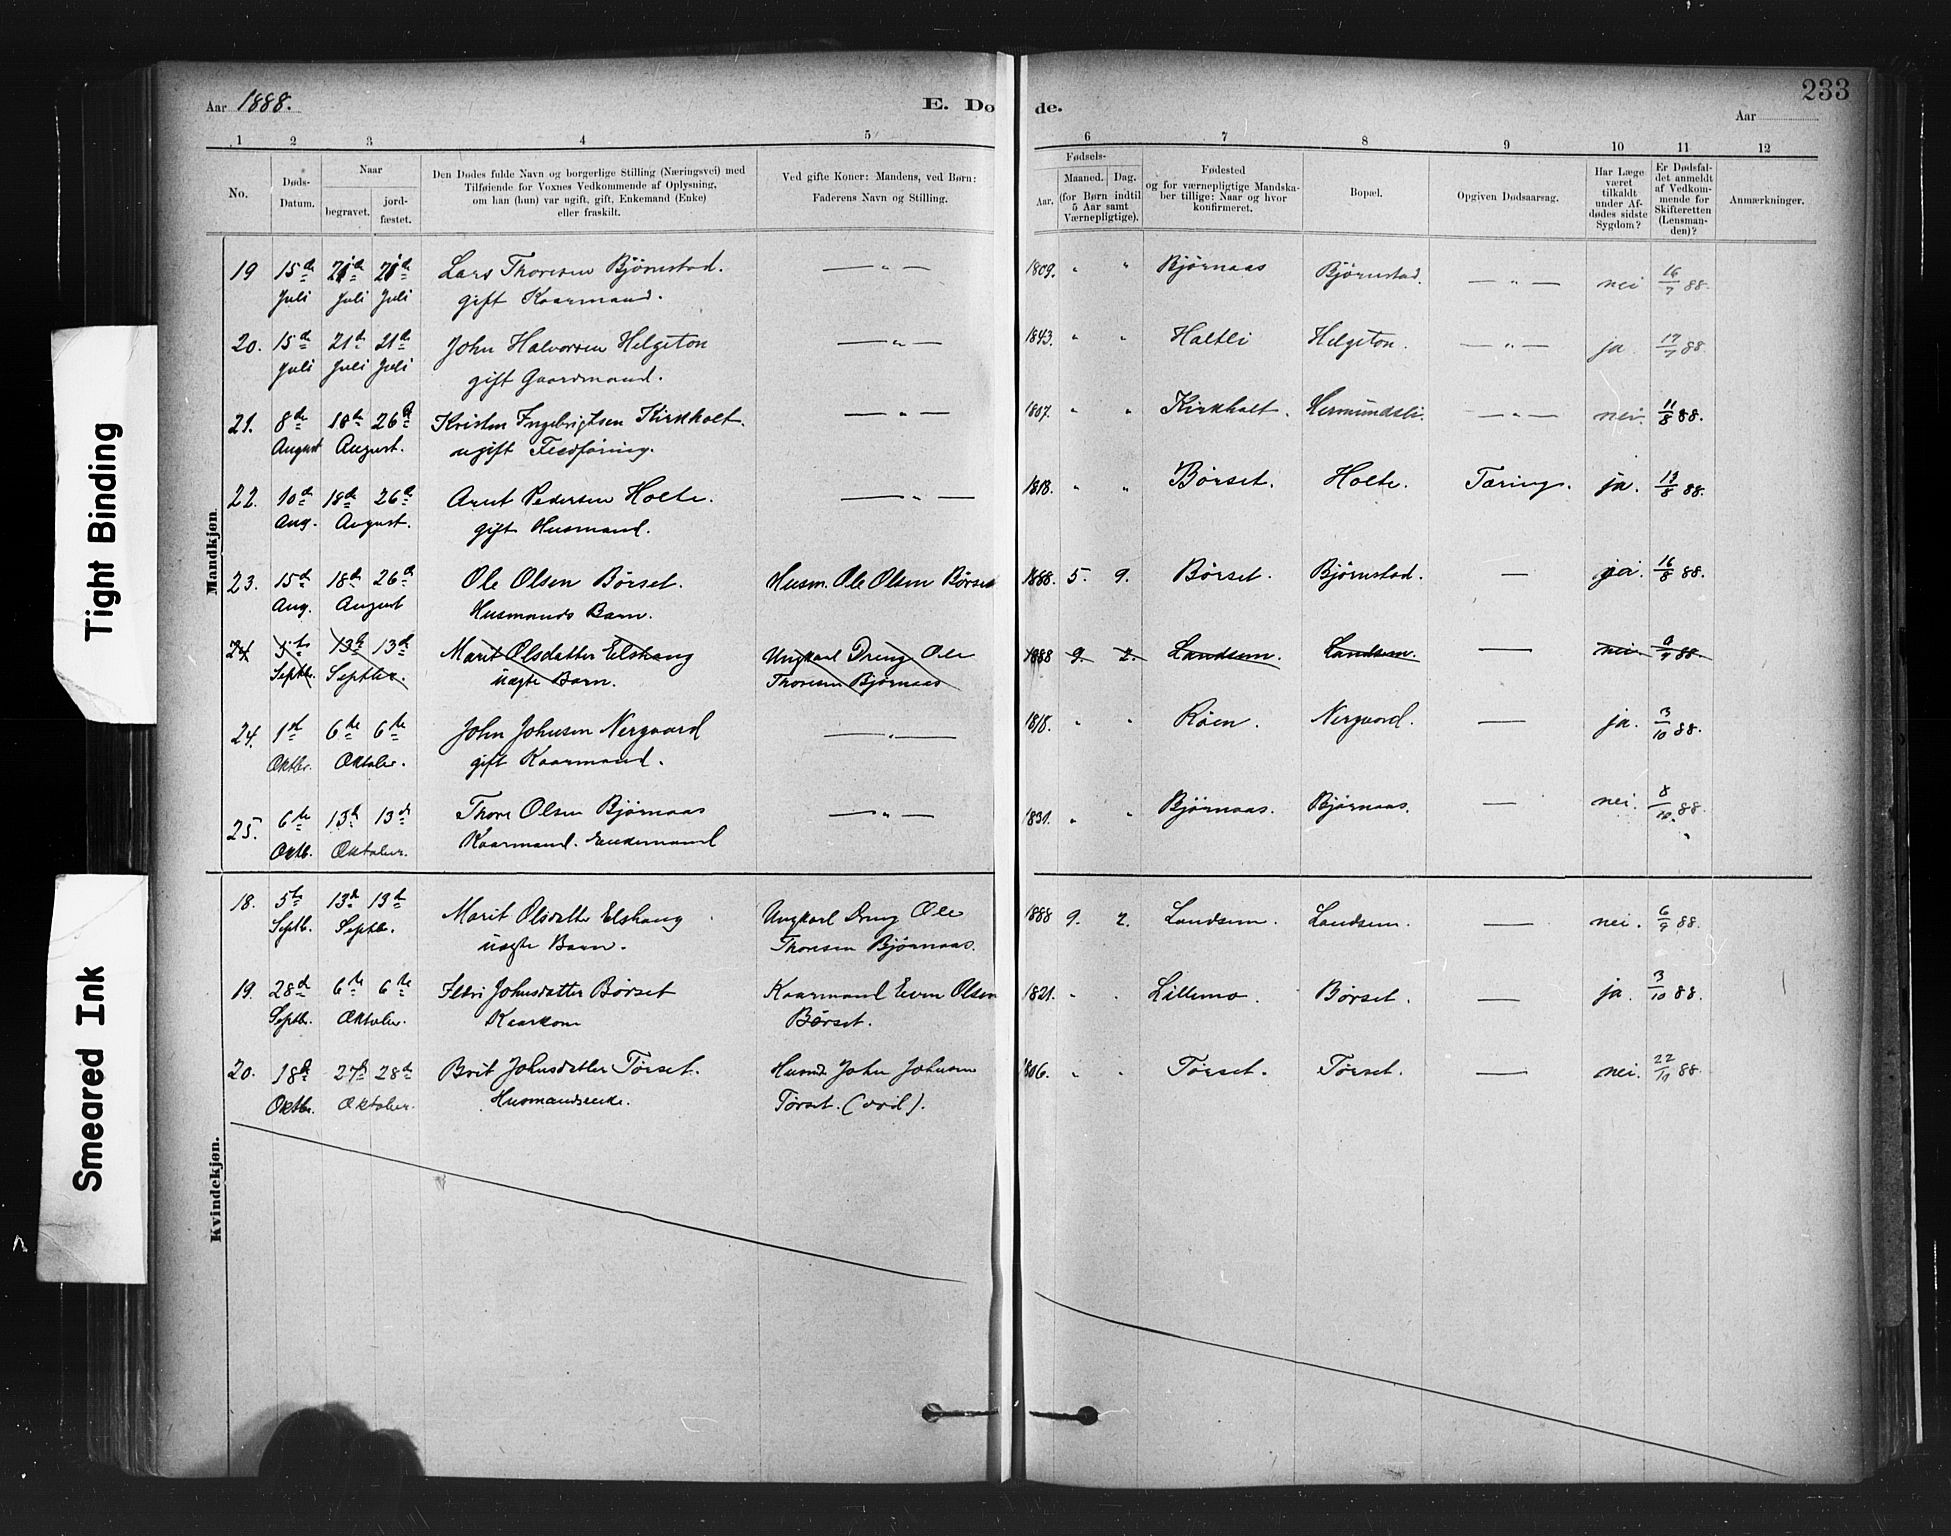 Aar 1888.
E. Dø
de.
233
Aar
1 2 3 4 5 6 7 8 9 10 11 12
No.
Døds-
Datum.
Naar
begravet.
jord-
fæstet.
Den Dødes fulde Navn og borgerlige Stilling (Næringsvei) med
Tilføiende for Voxnes Vedkommende af Oplysning,
om han (hun) var ugift, gift, Enkemand (Enke)
eller fraskilt.
Ved gifte Koner: Mandens, ved Børn:
Faderens Navn og Stilling.
Fødsels-
Aar.
Maaned. Dag.
(for Børn indtil
5 Aar samt
Værnepligtige).
Fødested
og for værnepligtige Mandska-
ber tillige: Naar og hvor
konfirmeret.
Bopæl.
Opgiven Dødsaarsag.
Har Læge
været
tilkaldt
under Af-
dødes sidste
Sygdom?
Er Dødsfal-
det anmeldt
af Vedkom-
mende for
Skifteretten
(Lensman-
den)?
Anmærkninger.
Mandkjøn.
19 15de 21de 21de Lars Thoresen Bjørnstad. — " — 1809. " " Bjørnaas Bjørnstad. — " — nei 16/7 88.
Juli Juli Juli gift Kaarmand.
20. 15de 21de 21de John Halvorsen Helgeton — " — 1843. " " Haltli Helgeton. — " — ja. 17/7 88.
Juli Juli Juli gift Gaardmand.
21. 8de 18de 26de Kristen Ingebrigtsen Kirkholt. — " — 1807. " " Kirkholt. Hermundsli. — " — nei. 11/8 88.
August August. ugift Fledføring.
22. 10de 18de 26de Arnt Pedersen Holte. — " — 1818. " " Børset. Holte. Tæring. ja. 13/8 88.
Aug. August. gift Husmand.
23. 15de 18de 26de Ole Olsen Børset. Husm. Ole Olsen Børset 1888. 5. 9. Børset. Bjørnstad. — 16/8 88.
Aug. August Husmands Barn.
24 5te 13de 13de Marit Olsdatter Elshaug Ungkarl Dreng Ole 1888 9. 2. Landsem. Landsem. — nei. 6/9 88.
Septbr. Septbr. uægte Barn. Thoresen Bjørnaas
24. 1ste 6te 6te John Johnsen Nergaard — " — 1818. " " Røen. Nergaard. — ja. 3/10 88.
Oktbr. Oktober. gift Kaarmand.
25. 6te 13de 13de Thore Olsen Bjørnaas — " — 1831. " " Bjørnaas. Bjørnaas. — nei. 8/10. 88.
Oktb. Oktober. Kaarmand. Enkemand "
Kvindekjøn.
18. 5te 13de 13de Marit Olsdatter Elshaug Ungkarl Dreng Ole 1888 9. 2. Landsem. Landsem. — nei. 6/9 88.
Septb. Septbr. uægte Barn. Thoresen Bjørnaas.
19. 28de 6te 6te Johnsdatter Børset Kaarmand Even Olsen 1821. " " Lillemo. Børset. — ja. 3/10 88.
Septbr. Oktober. Kaarkone Børset.
20. 18de 27de 28de Brit Johnsdatter Tørset. Husmd John Johnsen 1806. " " Tørset. Tørset. — nei. 22/11 88.
Oktbr. Oktober. Husmandsenke. Tørset. (død).
Tight Binding
Smeared Ink